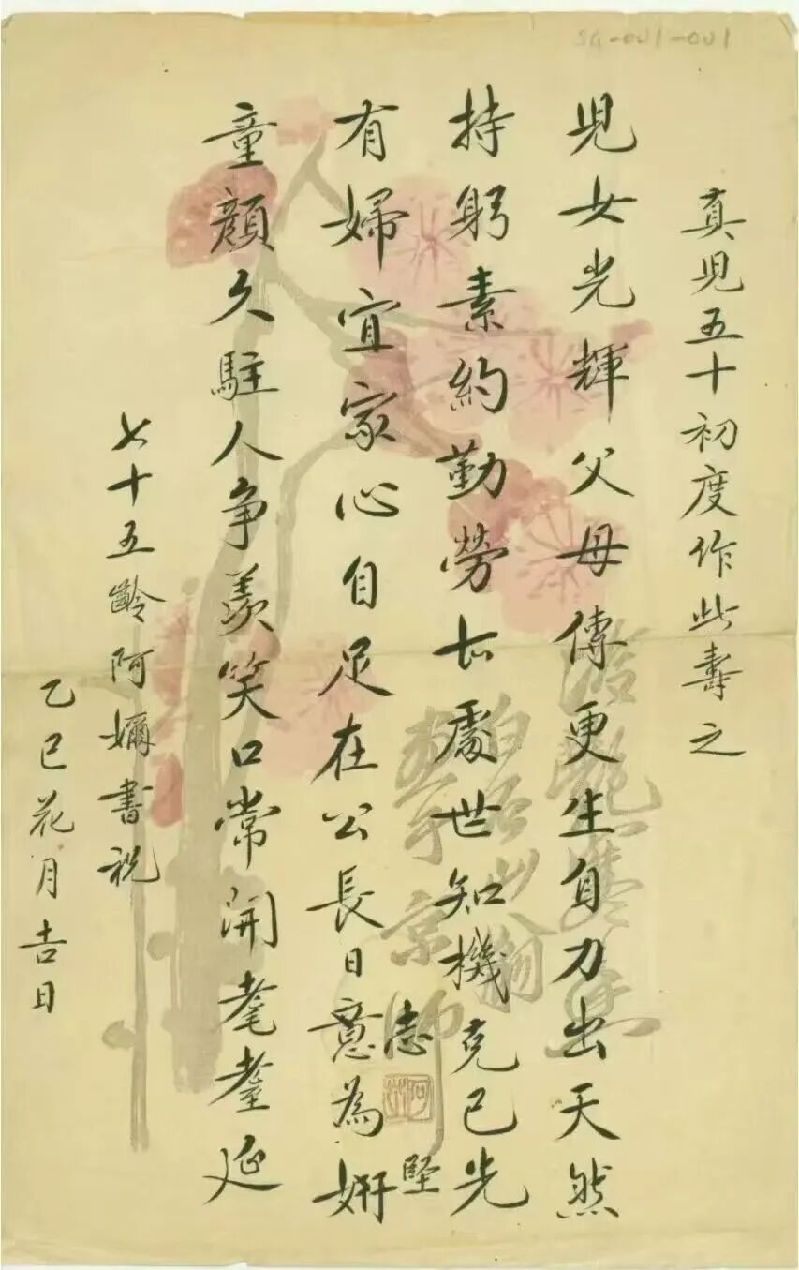 SG-001-001
真兒五十初度作此壽之
兒女光輝父母傳更生自力出天然
持躬素約勤勞處世知機克己先
有婦宜家心自足在公長日意為妍
志
堅
童顏久駐人争羨笑口常開耄耋延
七十五齡阿嬭書祝
乙巳花月吉日
白石山翁
畫于京師